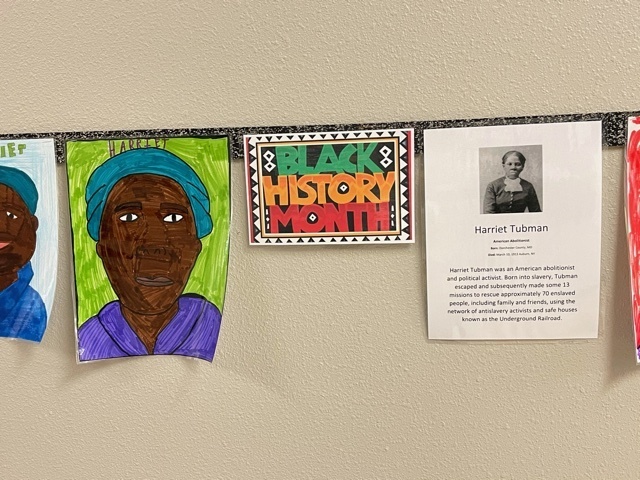 IEF
HARRIET
BLACK
HISTORY
MONTH
Harriet Tubman
American Abolitionist
Born: Dorchester County, MD
Died: March 10, 1913 Auburn, NY
Harriet Tubman was an American abolitionist
and political activist. Born into slavery, Tubman
escaped and subsequently made some 13
missions to rescue approximately 70 enslaved
people, including family and friends, using the
network of antislavery activists and safe houses
known as the Underground Railroad.